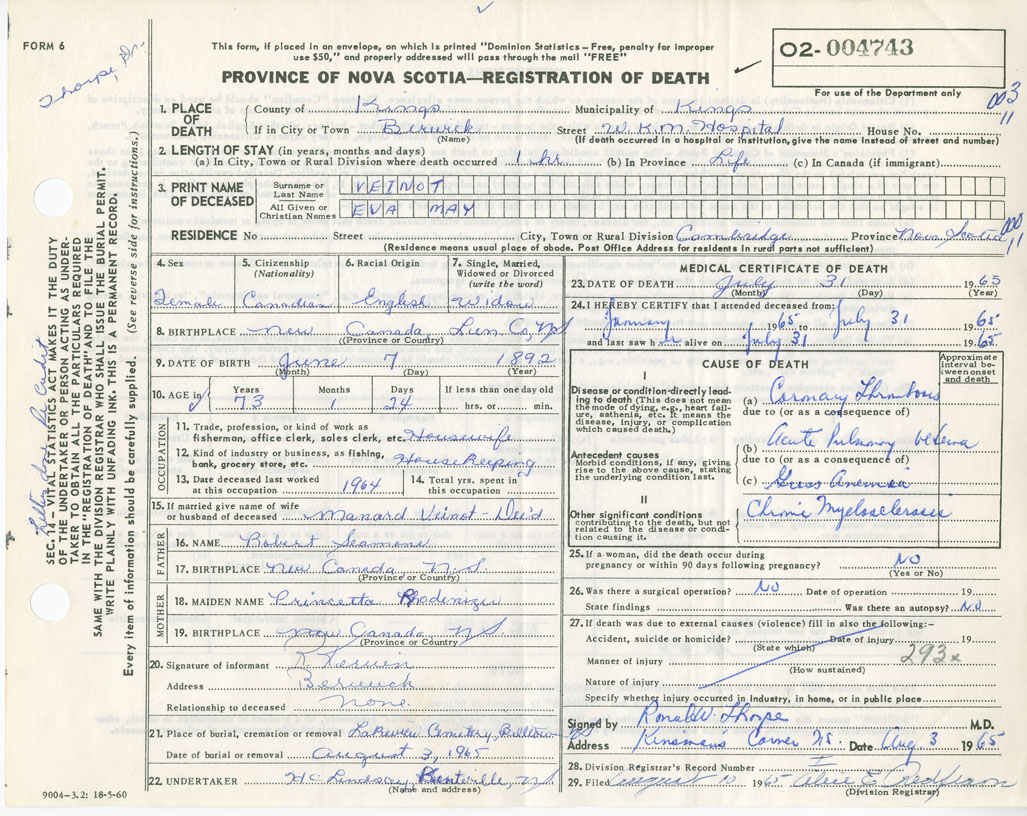 FORM 6
Thorpe, Dr.
This form, if placed in an envelope, on which is printed "Dominion Statistics – Free, penalty for improper
use $50," and properly addressed will pass through the mail "FREE"
PROVINCE OF NOVA SCOTIA—REGISTRATION OF DEATH
02-004743
For use of the Department only
003
11
1. PLACE OF DEATH
County of Kings Municipality of Kings
If in City or Town Berwick Street W.K.M. Hospital House No.
(Name) (If death occurred in a hospital or institution, give the name instead of street and number)
2. LENGTH OF STAY (in years, months and days)
(a) In City, Town or Rural Division where death occurred 1 hr. (b) In Province Life (c) In Canada (if immigrant)
3. PRINT NAME OF DECEASED
Surname or Last Name VEINOT
All Given or Christian Names EVA MAY
RESIDENCE No Street City, Town or Rural Division Cambridge Province Nova Scotia
000
11
(Residence means usual place of abode. Post Office Address for residents in rural parts not sufficient)
4. Sex
Female
5. Citizenship
(Nationality)
Canadian
6. Racial Origin
English
7. Single, Married,
Widowed or Divorced
(write the word)
Widow
8. BIRTHPLACE New Canada, Lun Co, NS
(Province or Country)
9. DATE OF BIRTH June 7 1892
(Month) (Day) (Year)
10. AGE in
Years Months Days If less than one day old
73 1 24 hrs. or min.
OCCUPATION
11. Trade, profession, or kind of work as
fisherman, office clerk, sales clerk, etc. Housewife
12. Kind of industry or business, as fishing,
bank, grocery store, etc. Housekeeping
13. Date deceased last worked
at this occupation 1964
14. Total yrs. spent in
this occupation
15. If married give name of wife
or husband of deceased Manard Veinot - Dec'd
FATHER
16. NAME Robert Seamone
17. BIRTHPLACE New Canada N.S.
(Province or Country)
MOTHER
18. MAIDEN NAME Princetta Rhodenizer
19. BIRTHPLACE New Canada N.S.
(Province or Country)
20. Signature of informant R.
Address Berwick
Relationship to deceased None
21. Place of burial, cremation or removal Lakeview Cemetery
Date of burial or removal August 3, 1965
22. UNDERTAKER H C Lindsay, Kentville, N.S.
(Name and address)
9004-3.2: 18-5-60
MEDICAL CERTIFICATE OF DEATH
23. DATE OF DEATH July 31 1965
(Month) (Day) (Year)
24. I HEREBY CERTIFY that I attended deceased from:
January 1965 to July 31 1965
and last saw her alive on July 31 1965
CAUSE OF DEATH
Approximate
interval between
onset
and death
I
Disease or condition directly leading
to death (This does not mean
the mode of dying, e.g., heart failure,
asthenia, etc. It means the
disease, injury, or complication
which caused death.)
(a) Coronary Thrombosis
due to (or as a consequence of)
(b) Acute Pulmonary oedema
due to (or as a consequence of)
Antecedent causes
Morbid conditions, if any, giving
rise to the above cause, stating
the underlying condition last.
(c) Anemia
II
Other significant conditions
contributing to the death, but not
related to the disease or condition
causing it.
Chronic Myelosclerosis
25. If a woman, did the death occur during
pregnancy or within 90 days following pregnancy? NO
(Yes or No)
26. Was there a surgical operation? NO Date of operation 19
State findings Was there an autopsy? NO
27. If death was due to external causes (violence) fill in also the following:–
Accident, suicide or homicide? Date of injury 19
(State which)
293x
Manner of injury
(How sustained)
Nature of injury
Specify whether injury occurred in industry, in home, or in public place
Signed by Ronald W. Thorpe M.D.
Address Kinsman's Corner NS. Date Aug 3 1965
28. Division Registrar's Record Number
29. Filed August 1965
(Division Registrar)
SEC. 14 – VITAL STATISTICS ACT MAKES IT THE DUTY
OF THE UNDERTAKER OR PERSON ACTING AS UNDERTAKER
TO OBTAIN ALL THE PARTICULARS REQUIRED
IN THE "REGISTRATION OF DEATH" AND TO FILE THE
SAME WITH THE DIVISION REGISTRAR WHO SHALL ISSUE THE BURIAL PERMIT.
WRITE PLAINLY WITH UNFADING INK. THIS IS A PERMANENT RECORD.
Every item of information should be carefully supplied. (See reverse side for instructions.)